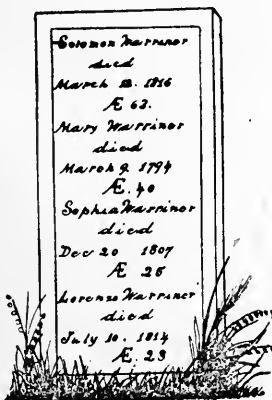 Solomon Warrinor
died
March 12. 1816
Æ 62.
Mary Warrinor
died
March 9. 1794
Æ. 40
Sophia Warrinor
died
Dec 20 1807
Æ 25
Lorenzo Warriner
died
July 10. 1814
Æ. 23